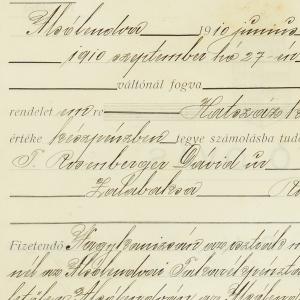 Alsólendva 1910 junius
1910 szeptember hó 27-én
váltónál fogva
rendelet re Hatszáz K
értéke készpénzben tegye számolásba tud
T. Rosenberger Dávid úr
Zalabaksa
Fizetendő Nagykanizsán az osztrák m
nél az Alsólendvai Takarékpénztá